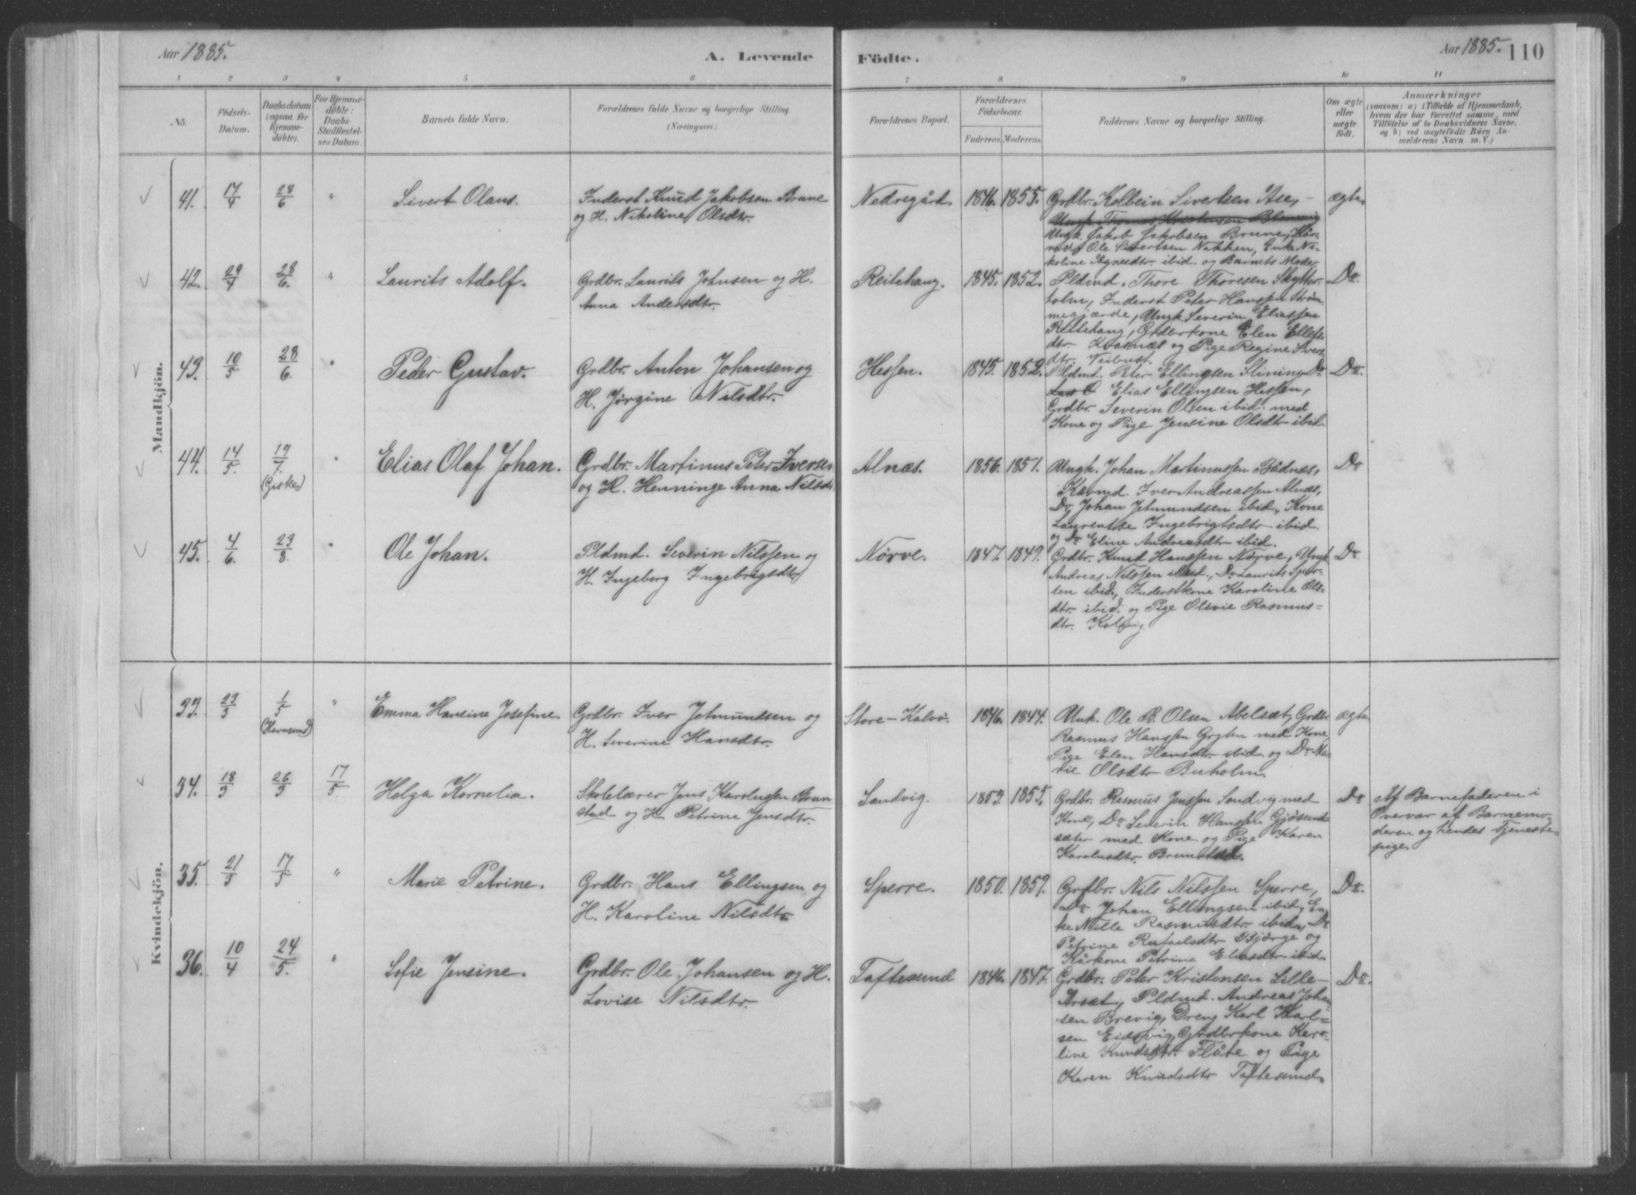 Aar 1885.
A. Levende
Födte.
Aar 1885.
110
1 2 3 4 5 6 7 8 9 10 11
No.
Födsels-
Datum.
Daabsdatum
(ogsaa for
Hjemme-
döbte).
For Hjemme-
döbte:
Daabs-
Stadfæstel-
ses Datum.
Barnets fulde Navn.
Forældrenes fulde Navne og borgerlige Stilling.
(Næringsvei)
Forældrenes Bopæl.
Forældrenes
Födselsaar.
Faderens.
Moderens.
Faddernes Navne og borgerlige Stilling.
Om ægte
eller
uægte
född.
Anmærkninger
Mandkjön.
41. 17/4 28/6 " Sivert Olaus.
Inderst Knud Jakobsen Brune
og H. Nikoline Olsdtr.
Nedregård. 1846. 1855.
Grdbr. Kolbein Sivertsen Ase,
Ungk. Jakob Jakobsen Brune,
Ole Sivertsen Nakken, Enke Ni-
koline ibid. og Barnets Moder
ægte
42. 29/4 28/6. " Laurits Adolf.
Grdbr. Laurits Johnsen og H.
Anna Andersdtr.
Reitehaug. 1845. 1852.
Pldmd. Thore Thoresen
holm, Inderst Peter Hanssen
Ungk. Severin Eliassen
Reitehaug, Grdbrkone Elen
dtr. og Pige Regine
dtr.
Do.
43. 10/5 28/6 " Peder Gustav.
Grdbr. Anton Johansen og
H. Jörgine Nilsdtr.
Hessen. 1845. 1852.
Pldmd. Peter Ellingsen Slinning, Do
Elias Ellingsen Hessen,
Grdbr. Severin Olsen ibid. med
Kone og Pige Jensine Olsdtr. ibid.
Do.
44. 14/5. 19/7. " Elias Olaf Johan.
(Giske)
Grdbr. Martinus Peter Iversen
og H. Henninge Anna Nilsdtr
Alnæs. 1856. 1851.
Ungk. Johan Martinussen
Kårmd. Iver Andreassen Alnæs,
Do Johan Jetmundsen ibid, Kone
Laurentse Ingebrigtsdtr. ibid.
og Do Eline Andreasdtr. ibid.
Do
45. 4/6. 23/8. " Ole Johan.
Pldmd. Severin Nilssen og
H. Ingeborg Ingebrigtsdtr
Nörve. 1847. 1849.
Grdbr. Knud Hanssen Nörve, Ungk.
Andreas Nilssen ibid., Do Laurits
sen ibid, Inderstkone Karoline Ols-
dtr. ibid. og Pige Olivie Rasmus-
dtr.
Do
Kvindekjön.
33. 23/3 1/5 " Emma Hansine Josefine.
Grdbr. Iver Jetmundsen og
H. Severine Hansdtr.
Store-Kalvö. 1846. 1844.
Unk. Ole B. Olsen Abelsæt, Grdbr.
Rasmus Hanssen med Kone,
Pige Elen Hansdtr. ibid og Do Ma-
rie Olsdtr Buholm.
ægte
34. 18/3 26/5 17/5 Helga Kornelia.
Skolelærer Jens Karolussen Brun-
stad og H. Petrine Jensdtr.
Sandvig. 1853. 1855.
Grdbr. Rasmus Jenssen Sandvig med
Kone, Do Severin Hanssen
sæter med Kone og Pige Karen
Karolusdtr. Brunstad.
Do
Af Barnefaderen i
Overvær af Barnemo-
deren og hendes Tjeneste-
pige.
35. 21/3 17/5 " Marie Petrine.
Grdbr. Hans Ellingsen og
H. Karoline Nilsdtr
Sperre. 1850. 1859.
Grdbr. Nils Nilssen Sperre,
Do Johan Ellingsen ibid, En-
ke Malle Rasmusdtr. ibid, Do
Petrine Rafaelsdtr. og
Kårkone Petrine Eliasdtr. ibid.
Do.
36. 10/4 24/5. " Sofie Jensine.
Grdbr. Ole Johansen og H.
Lovise Nilsdtr.
Taftesund 1846. 1847.
Grdbr. Peter Kristensen Lille-
Aarsæt, Pldmd. Andreas Johan-
sen Brevig, Dreng Karl Karl-
sen Eidsvig, Grdbrkone Karo-
line Knudsdtr. Flåte og Pige
Karen Knudsdtr. Taftesund.
Do.